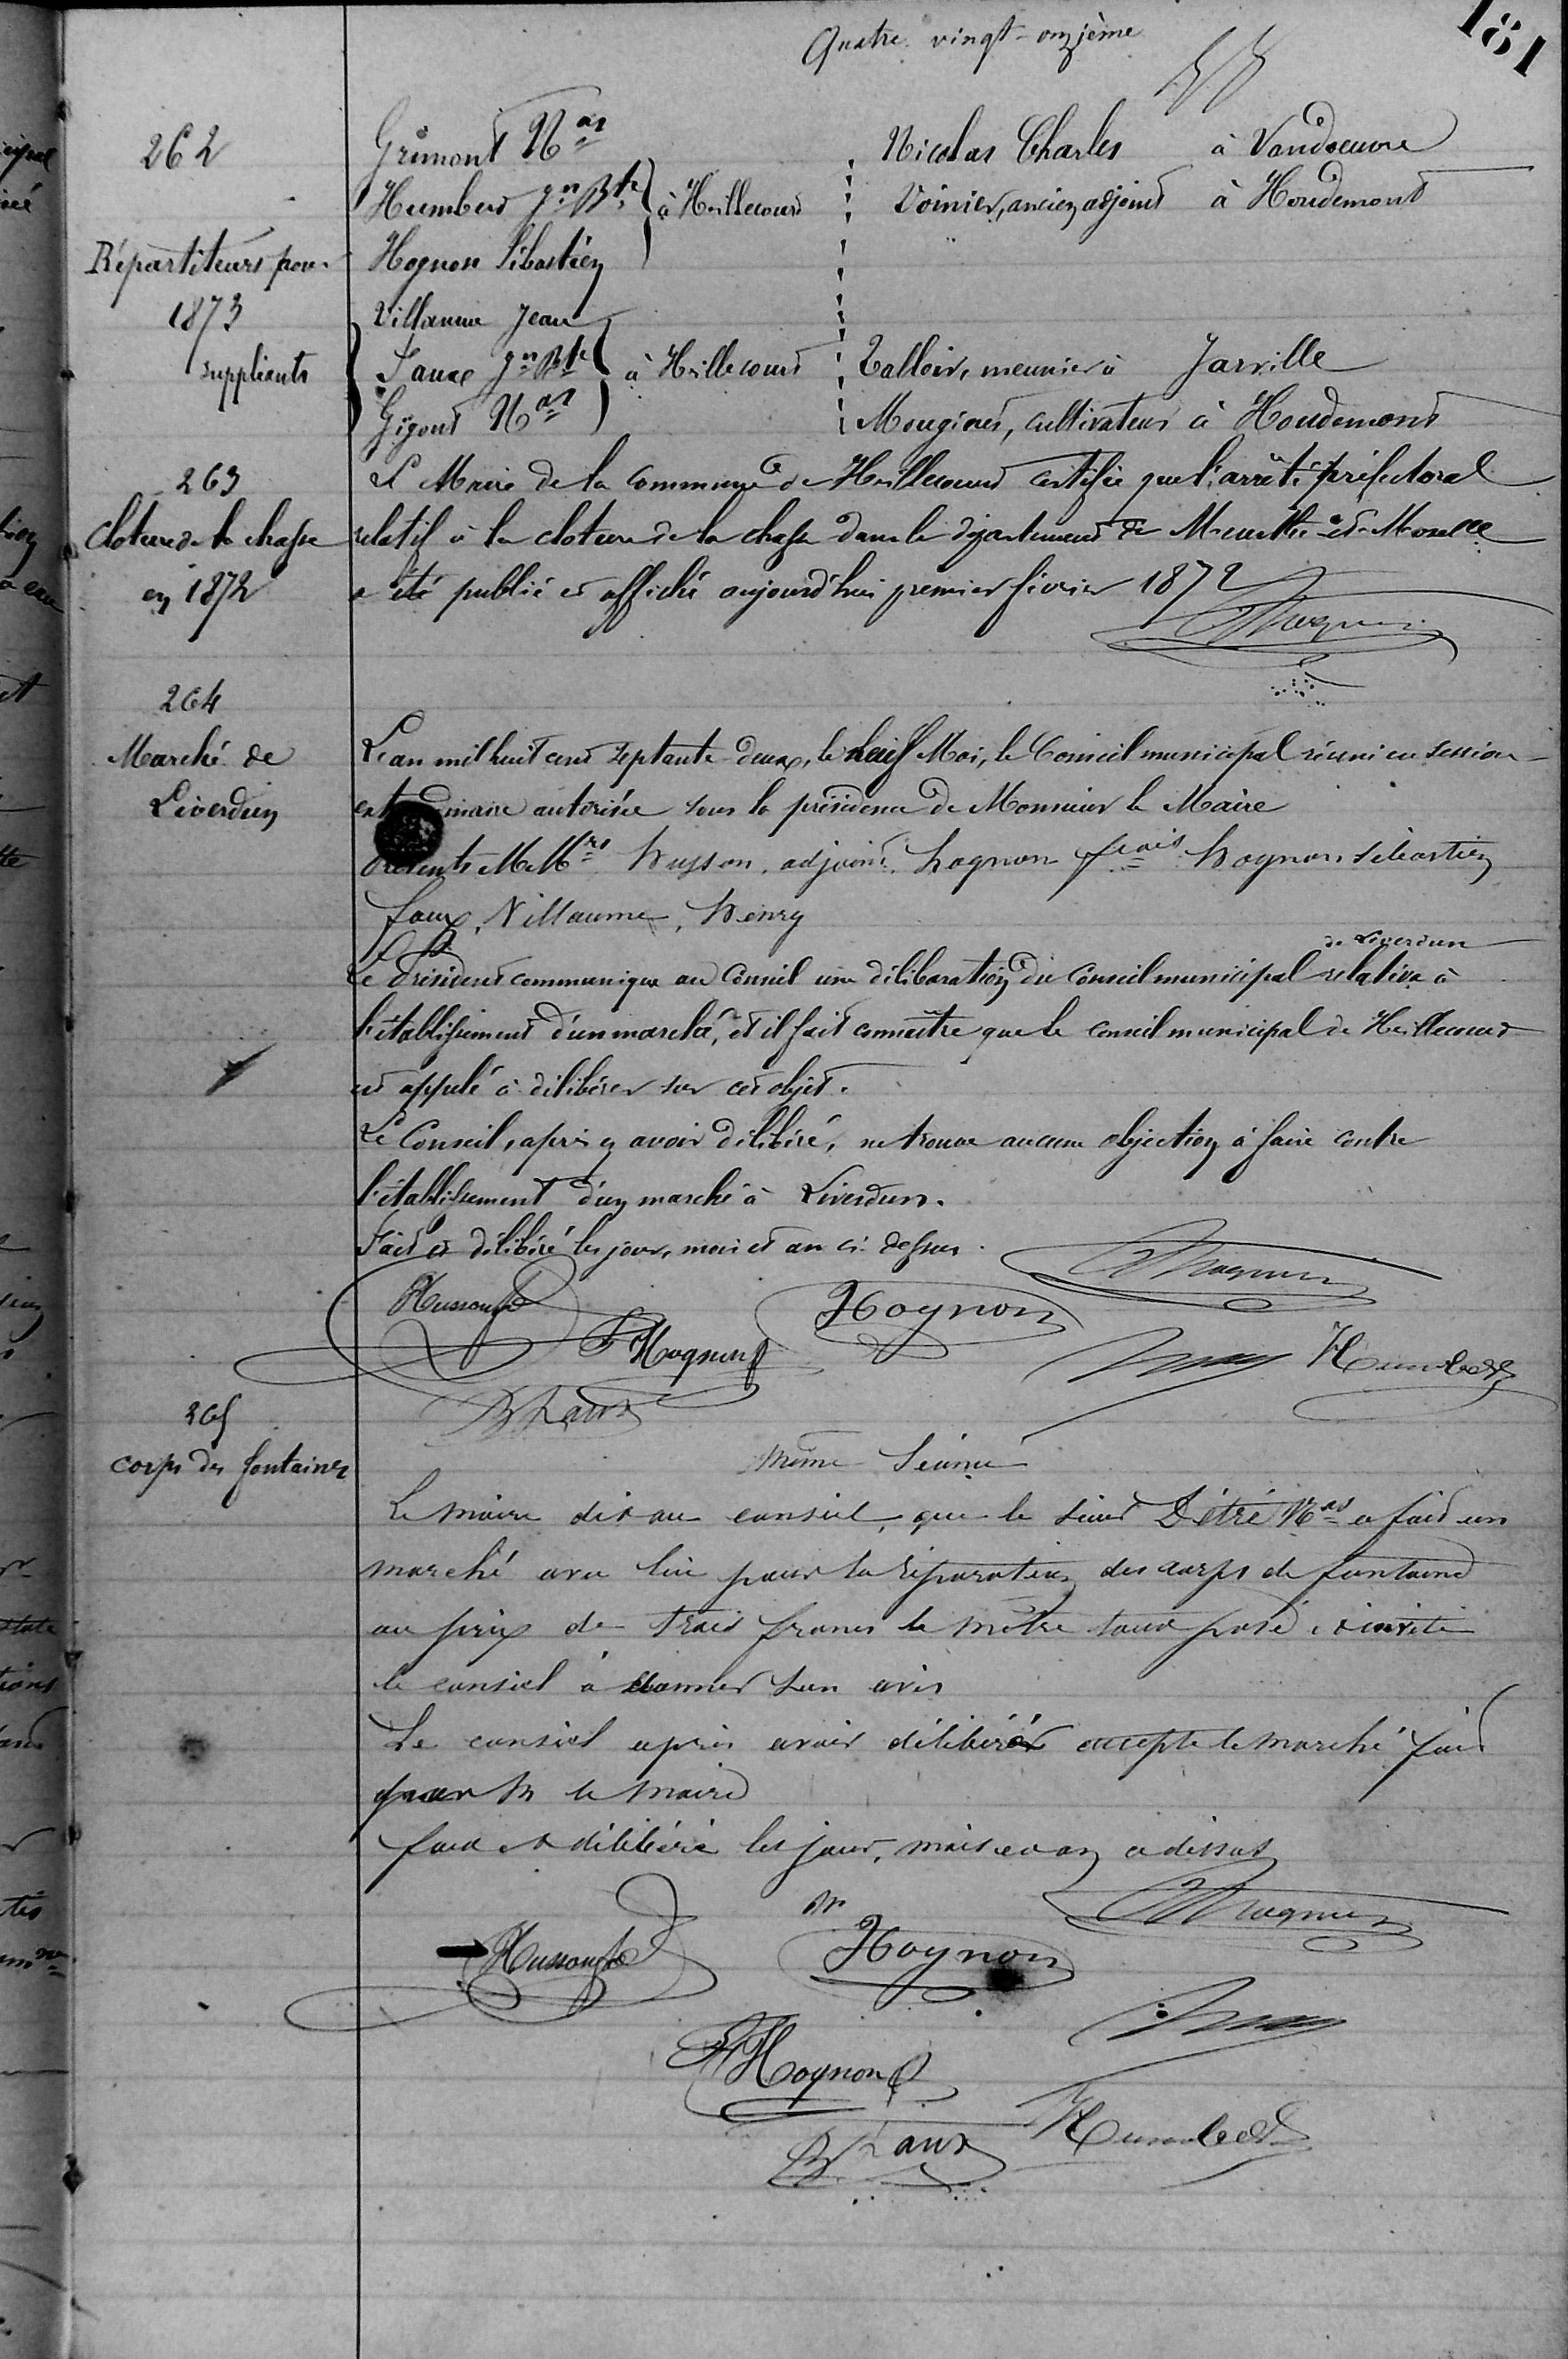 Quatre vingt-onzième
181
262
Répartiteurs pour
1873
suppléants
Grimont Nas
Humbert Jn Bte } à Heillecourt
Hognon Sébastien
Villaume Jean
Faux Jn Bte } à Heillecourt
Gigout Nas
Nicolas Charles à Vandoeuvre
Voinier, ancien adjoint à Houdemont
Talloir, meunier à Jarville
Mougines, cultivateur à Houdemont
263
Cloture de la chasse
en 1872
Le Maire de la Commune de Heillecourt certifie que l'arrêté préfectoral
relatif à la cloture de la chasse dans le département de Meurthe-et-Moselle
a été publié et affiché aujourd'hui premier février 1872
Hognon
264
Marché de
Liverdun
L'an mil huit cent septante deux, le neuf Mai, le Conseil municipal réuni en session
ext dinaire autorisée sous la présidence de Monsieur le Maire
Présents MMrs Husson, adjoint, hognon frois hognon sébastien
faux, Villaume, henry
de Liverdun
Le Président communique au Conseil une délibération du Conseil municipal relative à
l'établissement d'un marché, et il fait connaître que le conseil municipal de Heillecourt
est appelé à délibérer sur cet objet.
Le Conseil, après en avoir délibéré, ne trouve aucune objection à faire contre
l'établissement d'un marché à Liverdun.
Fait et délibéré les jour, mois et an ci-dessus.
Hognon
Husson
Hognon
F Hognon
Humbert
B Faux
265
corps des fontaines
même Séance
Le maire dit au conseil, que le sieur Détré Nas a fait un
marché avec lui pour la réparation des corps de fontaine
au prix de trois francs le mètre tout posé, et invite
le conseil à donner son avis
Le conseil après avoir délibérér accepte le marché fait
par Mr le maire
fait et délibéré les jour, mois et an ci dessus
Hognon
Husson
Hognon
F Hognon
B Faux
Humbert